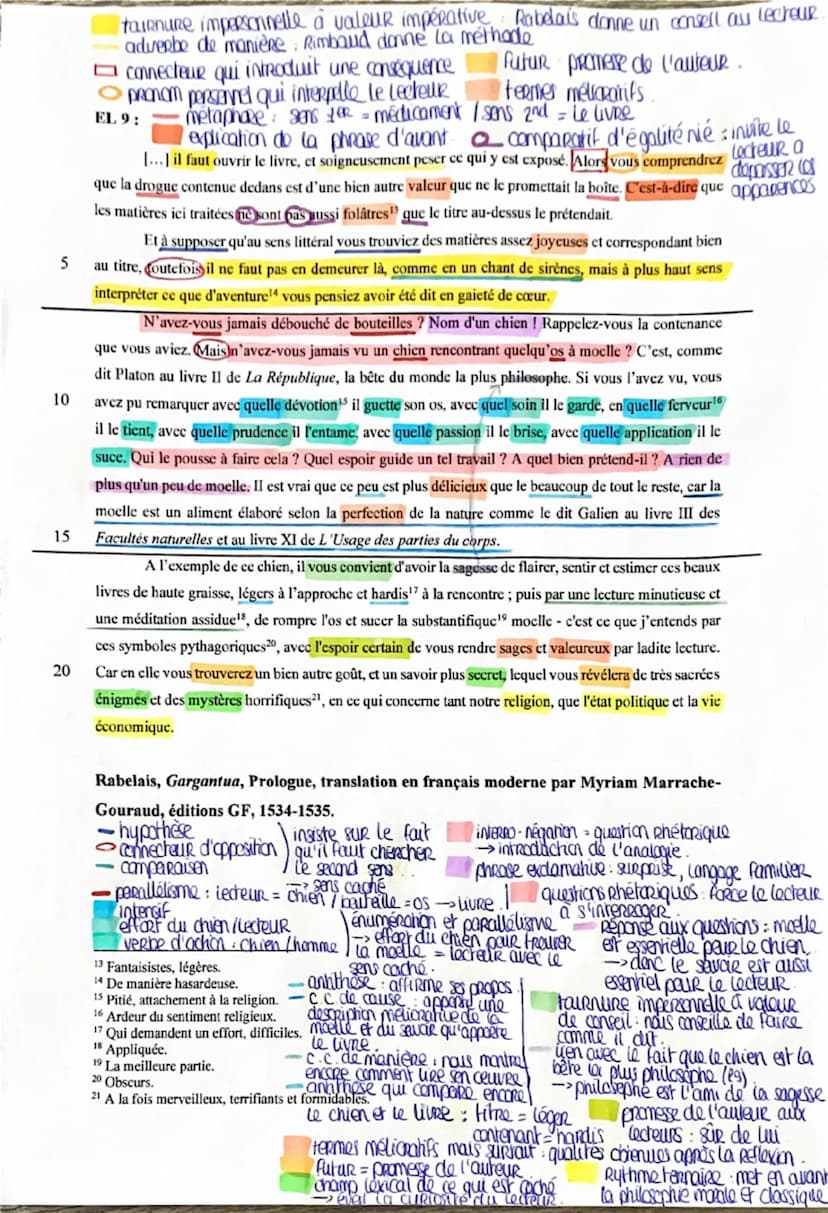 tournure impersonnelle à valeur impérative : Rabelais donne un conseil au lecteur.
adverbe de manière : Rimbaud donne la méthode
connecteur qui introduit une conséquence
futur : promesse de l'auteur.
pronom personnel qui interpelle le lecteur
termes mélioratifs
EL 9 :
métaphore : sens 1er = médicament / sens 2nd = le livre
explication de la phrase d'avant
comparatif d'égalité nié : invite le
lecteur à
dépasser les
apparences
[...] il faut ouvrir le livre, et soigneusement peser ce qui y est exposé. Alors vous comprendrez
que la drogue contenue dedans est d'une bien autre valeur que ne le promettait la boîte. C'est-à-dire que
les matières ici traitées ne sont pas aussi folâtres¹³ que le titre au-dessus le prétendait.
Et à supposer qu'au sens littéral vous trouviez des matières assez joyeuses et correspondant bien
5 au titre, toutefois il ne faut pas en demeurer là, comme en un chant de sirènes, mais à plus haut sens
interpréter ce que d'aventure¹⁴ vous pensiez avoir été dit en gaieté de cœur.
N'avez-vous jamais débouché de bouteilles ? Nom d'un chien ! Rappelez-vous la contenance
que vous aviez. Mais n'avez-vous jamais vu un chien rencontrant quelqu'os à moelle ? C'est, comme
dit Platon au livre II de La République, la bête du monde la plus philosophe. Si vous l'avez vu, vous
10 avez pu remarquer avec quelle dévotion¹⁵ il guette son os, avec quel soin il le garde, en quelle ferveur¹⁶
il le tient, avec quelle prudence il l'entame, avec quelle passion il le brise, avec quelle application il le
suce. Qui le pousse à faire cela ? Quel espoir guide un tel travail ? A quel bien prétend-il ? A rien de
plus qu'un peu de moelle. Il est vrai que ce peu est plus délicieux que le beaucoup de tout le reste, car la
moelle est un aliment élaboré selon la perfection de la nature comme le dit Galien au livre III des
15 Facultés naturelles et au livre XI de L'Usage des parties du corps.
A l'exemple de ce chien, il vous convient d'avoir la sagesse de flairer, sentir et estimer ces beaux
livres de haute graisse, légers à l'approche et hardis¹⁷ à la rencontre ; puis par une lecture minutieuse et
une méditation assidue¹⁸, de rompre l'os et sucer la substantifique¹⁹ moelle - c'est ce que j'entends par
ces symboles pythagoriques²⁰, avec l'espoir certain de vous rendre sages et valeureux par ladite lecture.
20 Car en elle vous trouverez un bien autre goût, et un savoir plus secret, lequel vous révélera de très sacrées
énigmes et des mystères horrifiques²¹, en ce qui concerne tant notre religion, que l'état politique et la vie
économique.
Rabelais, Gargantua, Prologue, translation en français moderne par Myriam Marrache-
Gouraud, éditions GF, 1534-1535.
hypothèse
connecteur d'opposition
comparaison
insiste sur le fait
qu'il faut chercher
le second sens
→ sens caché
parallélisme : lecteur = chien / bouteille = os → livre.
intensif
effort du chien/lecteur
verbe d'action : chien/homme
énumération et parallélisme
→ effort du chien pour trouver
la moelle = lecteur avec le
sens caché.
interro-négation = question rhétorique
→ introduction de l'analogie.
phrase exclamative : surprise, langage familier
questions rhétoriques : force le lecteur
à s'interroger.
réponse aux questions : moelle
est essentielle pour le chien,
→ donc le savoir est aussi
essentiel pour le lecteur.
¹³ Fantaisistes, légères.
¹⁴ De manière hasardeuse.
¹⁵ Pitié, attachement à la religion.
¹⁶ Ardeur du sentiment religieux.
¹⁷ Qui demandent un effort, difficiles.
¹⁸ Appliquée.
¹⁹ La meilleure partie.
²⁰ Obscurs.
²¹ A la fois merveilleux, terrifiants et formidables.
antithèse : affirme ses propos
c.c. de cause : apporte une
description méliorative de la
moelle et du savoir qu'apporte
le livre.
c.c. de manière : nous montre
encore comment lire son œuvre
antithèse qui compare encore
le chien et le livre : titre = léger
contenant = hardis
tournure impersonnelle à valeur
de conseil : nous conseille de faire
comme il dit.
lien avec le fait que le chien est la
bête la plus philosophe (l9)
→ philosophe est l'ami de la sagesse
promesse de l'auteur aux
lecteurs : sûr de lui
termes mélioratifs mais surtout : qualités obtenues après la réflexion.
futur = promesse de l'auteur.
champ lexical de ce qui est caché
→ éveil la curiosité du lecteur.
Rythme ternaire : met en avant
la philosophie morale et classique